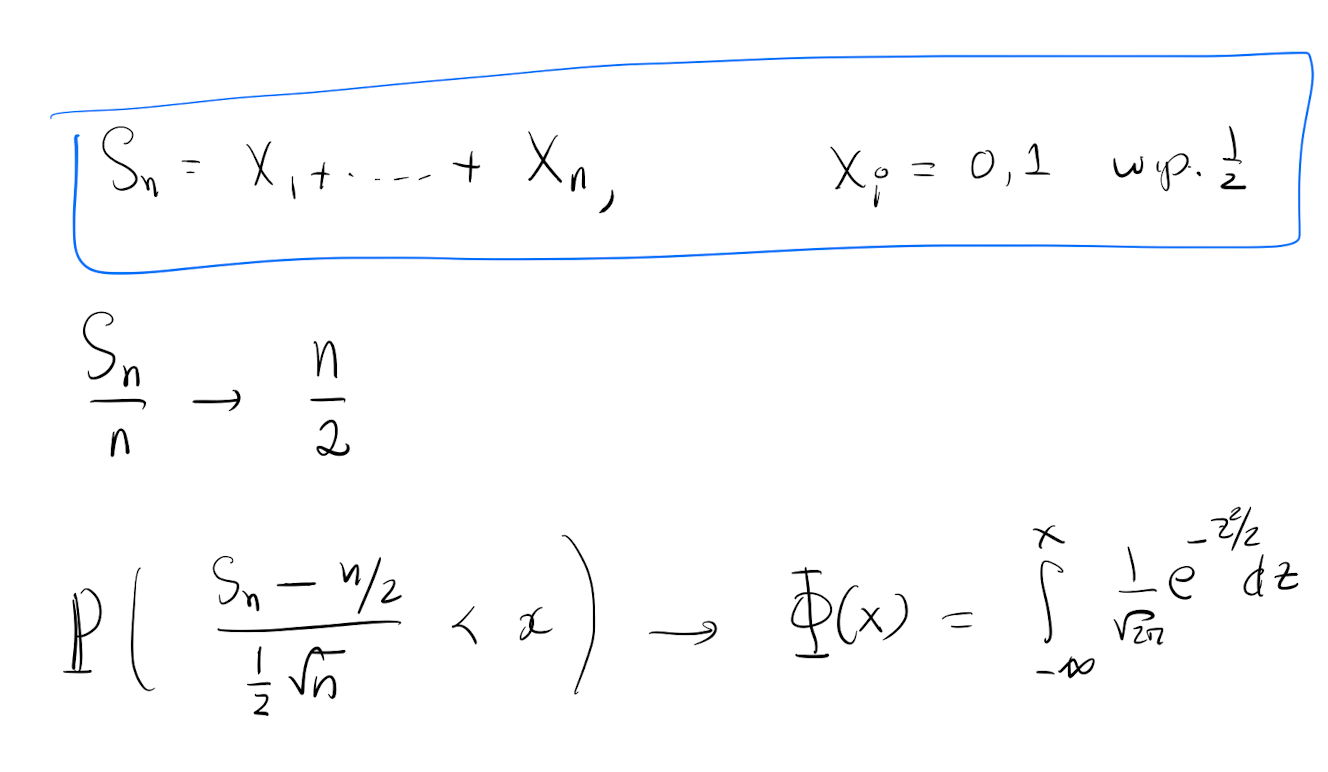 Sₙ = X₁ + ..... + Xₙ, Xᵢ = 0,1 w.p. 1/2
Sₙ/n → n/2
P( (Sₙ − n/2) / (1/2 √n) < x ) → Φ(x) = ∫_{-∞}^{x} 1/√2π e^{-z²/2} dz